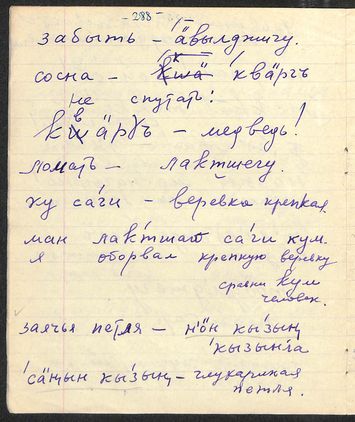 - 288 -
забыть – ӓвылджигу.
сосна – квӓргъ
не спутать!
квӓрɣъ – медведь!
ломать – лактшегу.
ху са́ги – веревка крепкая.
ман лаќтшаᵭ са́ги кум.
я оборвал крепкую веревку
сравни кум
человек.
заячья петля – н'ӧн кы́зың
кызын'ла
сӓңын кы́зың – глухариная
петля.